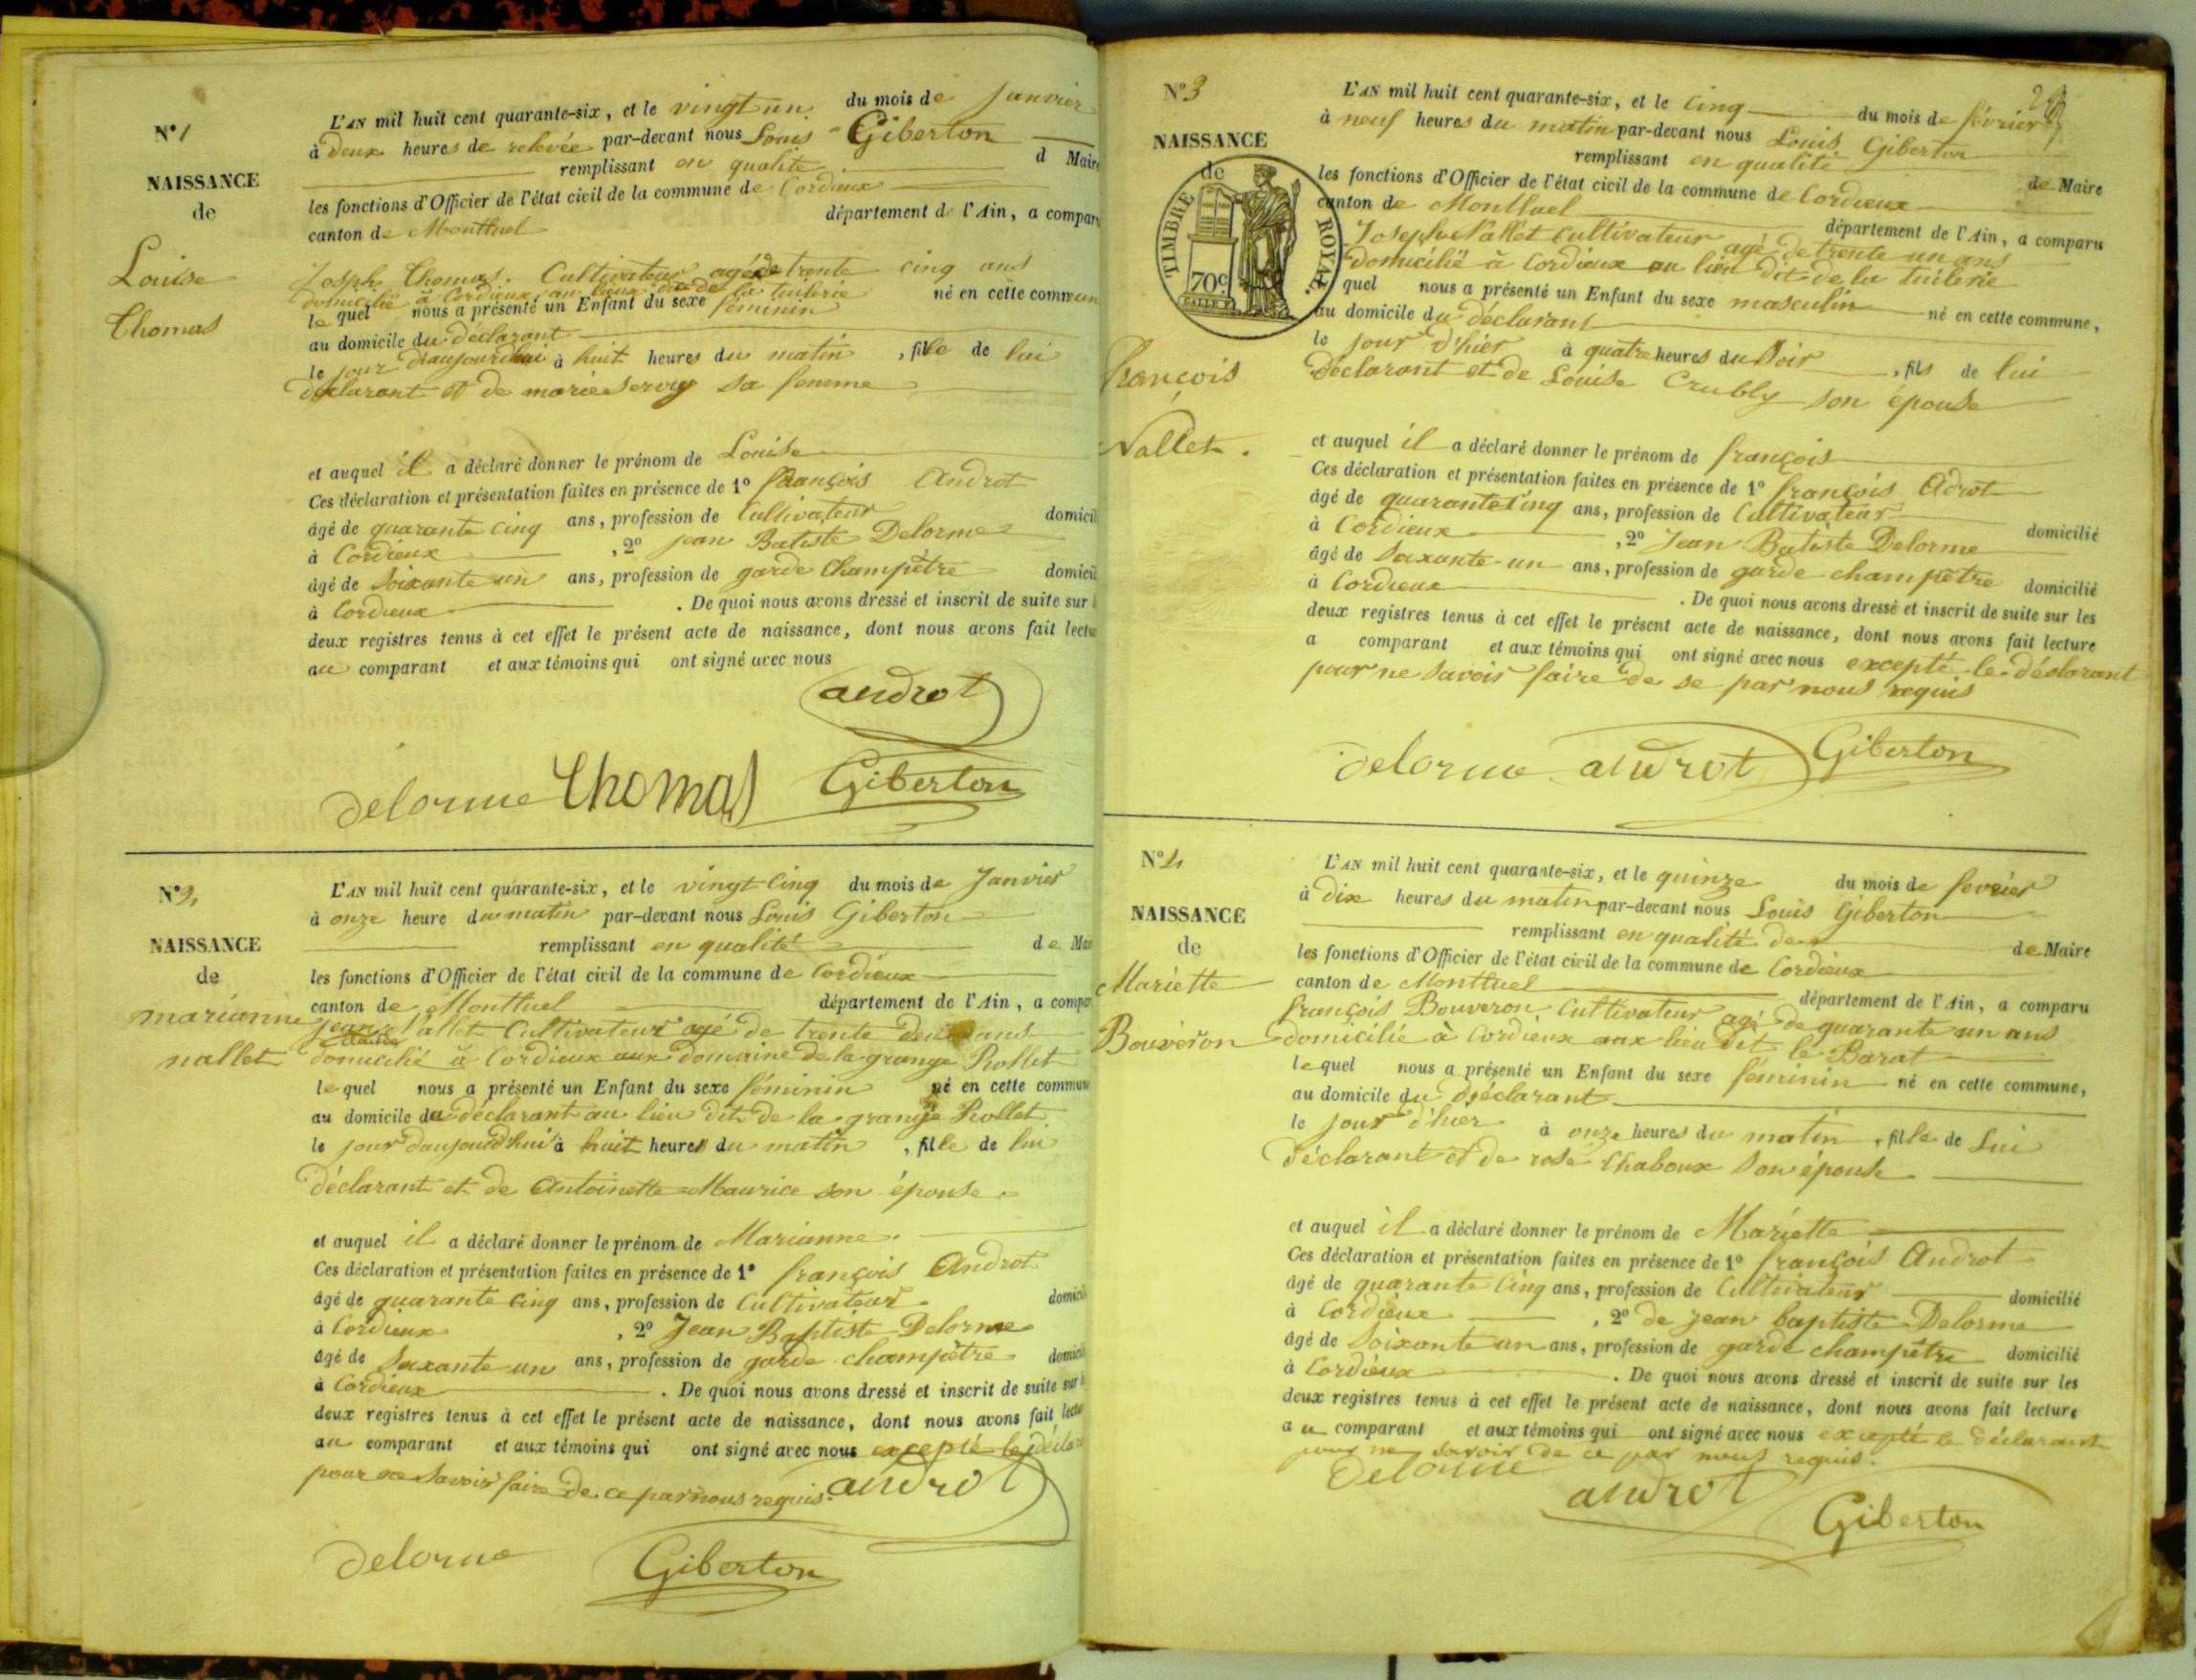 N° 1
NAISSANCE
de
Louise
Thomas
L'AN mil huit cent quarante-six, et le vingt un du mois de Janvier
à deux heures de relevée par-devant nous Louis Giberton
remplissant en qualité d Maire
les fonctions d'Officier de l'état civil de la commune de Cordieux
canton de Montluel département de l'Ain, a comparu
Joseph Thomas. Cultivateur agé de trente cinq ans
domicilié à Cordieux au lieux dit de la tuilerie
le quel nous a présenté un Enfant du sexe féminin né en cette commun
au domicile du déclarant
le jour d'aujourdhui à huit heures du matin, fille de lui
déclarant et de marie Servey sa femme
et auquel il a déclaré donner le prénom de Louise
Ces déclaration et présentation faites en présence de 1° François Androt
âgé de quarante cinq ans, profession de Cultivateur domicil
à Cordieux, 2° jean Batiste Delorme
âgé de Soixante un ans, profession de garde Champêtre domicil
à Cordieux. De quoi nous avons dressé et inscrit de suite sur l
deux registres tenus à cet effet le présent acte de naissance, dont nous avons fait lectu
au comparant et aux témoins qui ont signé avec nous
androt
delorme Thomas Giberton
N° 2,
NAISSANCE
de
marianne
nallet
L'AN mil huit cent quarante-six, et le vingt Cinq du mois de Janvier
à onze heure du matin par-devant nous Louis Giberton
remplissant en qualité de Mai
les fonctions d'Officier de l'état civil de la commune de Cordieux
canton de Montluel département de l'Ain, a compa
jean Nallet Cultivateur agé de trente deux ans
domicilié à Cordieux aux domaine de la grange Rollet
le quel nous a présenté un Enfant du sexe féminin né en cette commune
au domicile du déclarant au lieu dit de la grange Rollet
le jour d'aujourd'hui à huit heures du matin, fille de lui
déclarant et de Antoinette Maurice son épouse.
et auquel il a déclaré donner le prénom de Marianne.
Ces déclaration et présentation faites en présence de 1° françois Androt
âgé de quarante cinq ans, profession de Cultivateur domicili
à Cordieux, 2° Jean Baptiste Delorme
âgé de Soixante un ans, profession de garde champêtre domicil
à Cordieux. De quoi nous avons dressé et inscrit de suite sur l
deux registres tenus à cet effet le présent acte de naissance, dont nous avons fait lectu
au comparant et aux témoins qui ont signé avec nous excepté le décla
pour ne Savoir faire de ce par nous requis. androt
delorme Giberton
N° 3
NAISSANCE
de
TIMBRE ROYAL.
70c
François
Nallet.
L'AN mil huit cent quarante-six, et le Cinq du mois de février
à neuf heures du matin par-devant nous Louis Giberton
remplissant en qualité de Maire
les fonctions d'Officier de l'état civil de la commune de Cordieux
canton de Montluel département de l'Ain, a comparu
Joseph Nallet Cultivateur agé de trente un ans
domicilié à Cordieux au lieu dit de la tuilerie
quel nous a présenté un Enfant du sexe masculin né en cette commune,
au domicile du déclarant
le jour d'hier à quatre heures du Soir, fils de lui
déclarant et de Louise Crubly son épouse
et auquel il a déclaré donner le prénom de françois
Ces déclaration et présentation faites en présence de 1° françois Adrot
âgé de quarante cinq ans, profession de Cultivateur domicilié
à Cordieux, 2° Jean Batiste Delorme
âgé de Soixante un ans, profession de garde champêtre domicilié
à Cordieux. De quoi nous avons dressé et inscrit de suite sur les
deux registres tenus à cet effet le présent acte de naissance, dont nous avons fait lecture
a comparant et aux témoins qui ont signé avec nous excepté le déclarant
pour ne Savoir faire de se par nous requis
delorme androt Giberton
N° 4
NAISSANCE
de
Mariette
Bouveron
L'AN mil huit cent quarante-six, et le quinze du mois de fevrier
à dix heures du matin par-devant nous Louis Giberton
remplissant en qualité de de Maire
les fonctions d'Officier de l'état civil de la commune de Cordieux
canton de Montluel département de l'Ain, a comparu
françois Bouveron, Cultivateur agé de quarante un ans
domicilié à Cordieux aux lieu dit le Barat
le quel nous a présenté un Enfant du sexe féminin né en cette commune,
au domicile du Déclarant
le jour d'hier à onze heures du matin, fille de Lui
déclarant et de rose Chaboux Son épouse
et auquel il a déclaré donner le prénom de Mariette
Ces déclaration et présentation faites en présence de 1° françois Androt
âgé de quarante Cinq ans, profession de Cultivateur domicilié
à Cordieux, 2° de jean baptiste Delorme
âgé de Soixante un ans, profession de garde champêtre domicilié
à Cordieux. De quoi nous avons dressé et inscrit de suite sur les
deux registres tenus à cet effet le présent acte de naissance, dont nous avons fait lecture
au comparant et aux témoins qui ont signé avec nous excepté le déclarant
pour ne savoir de ce par nous requis.
Delorme
androt
Giberton